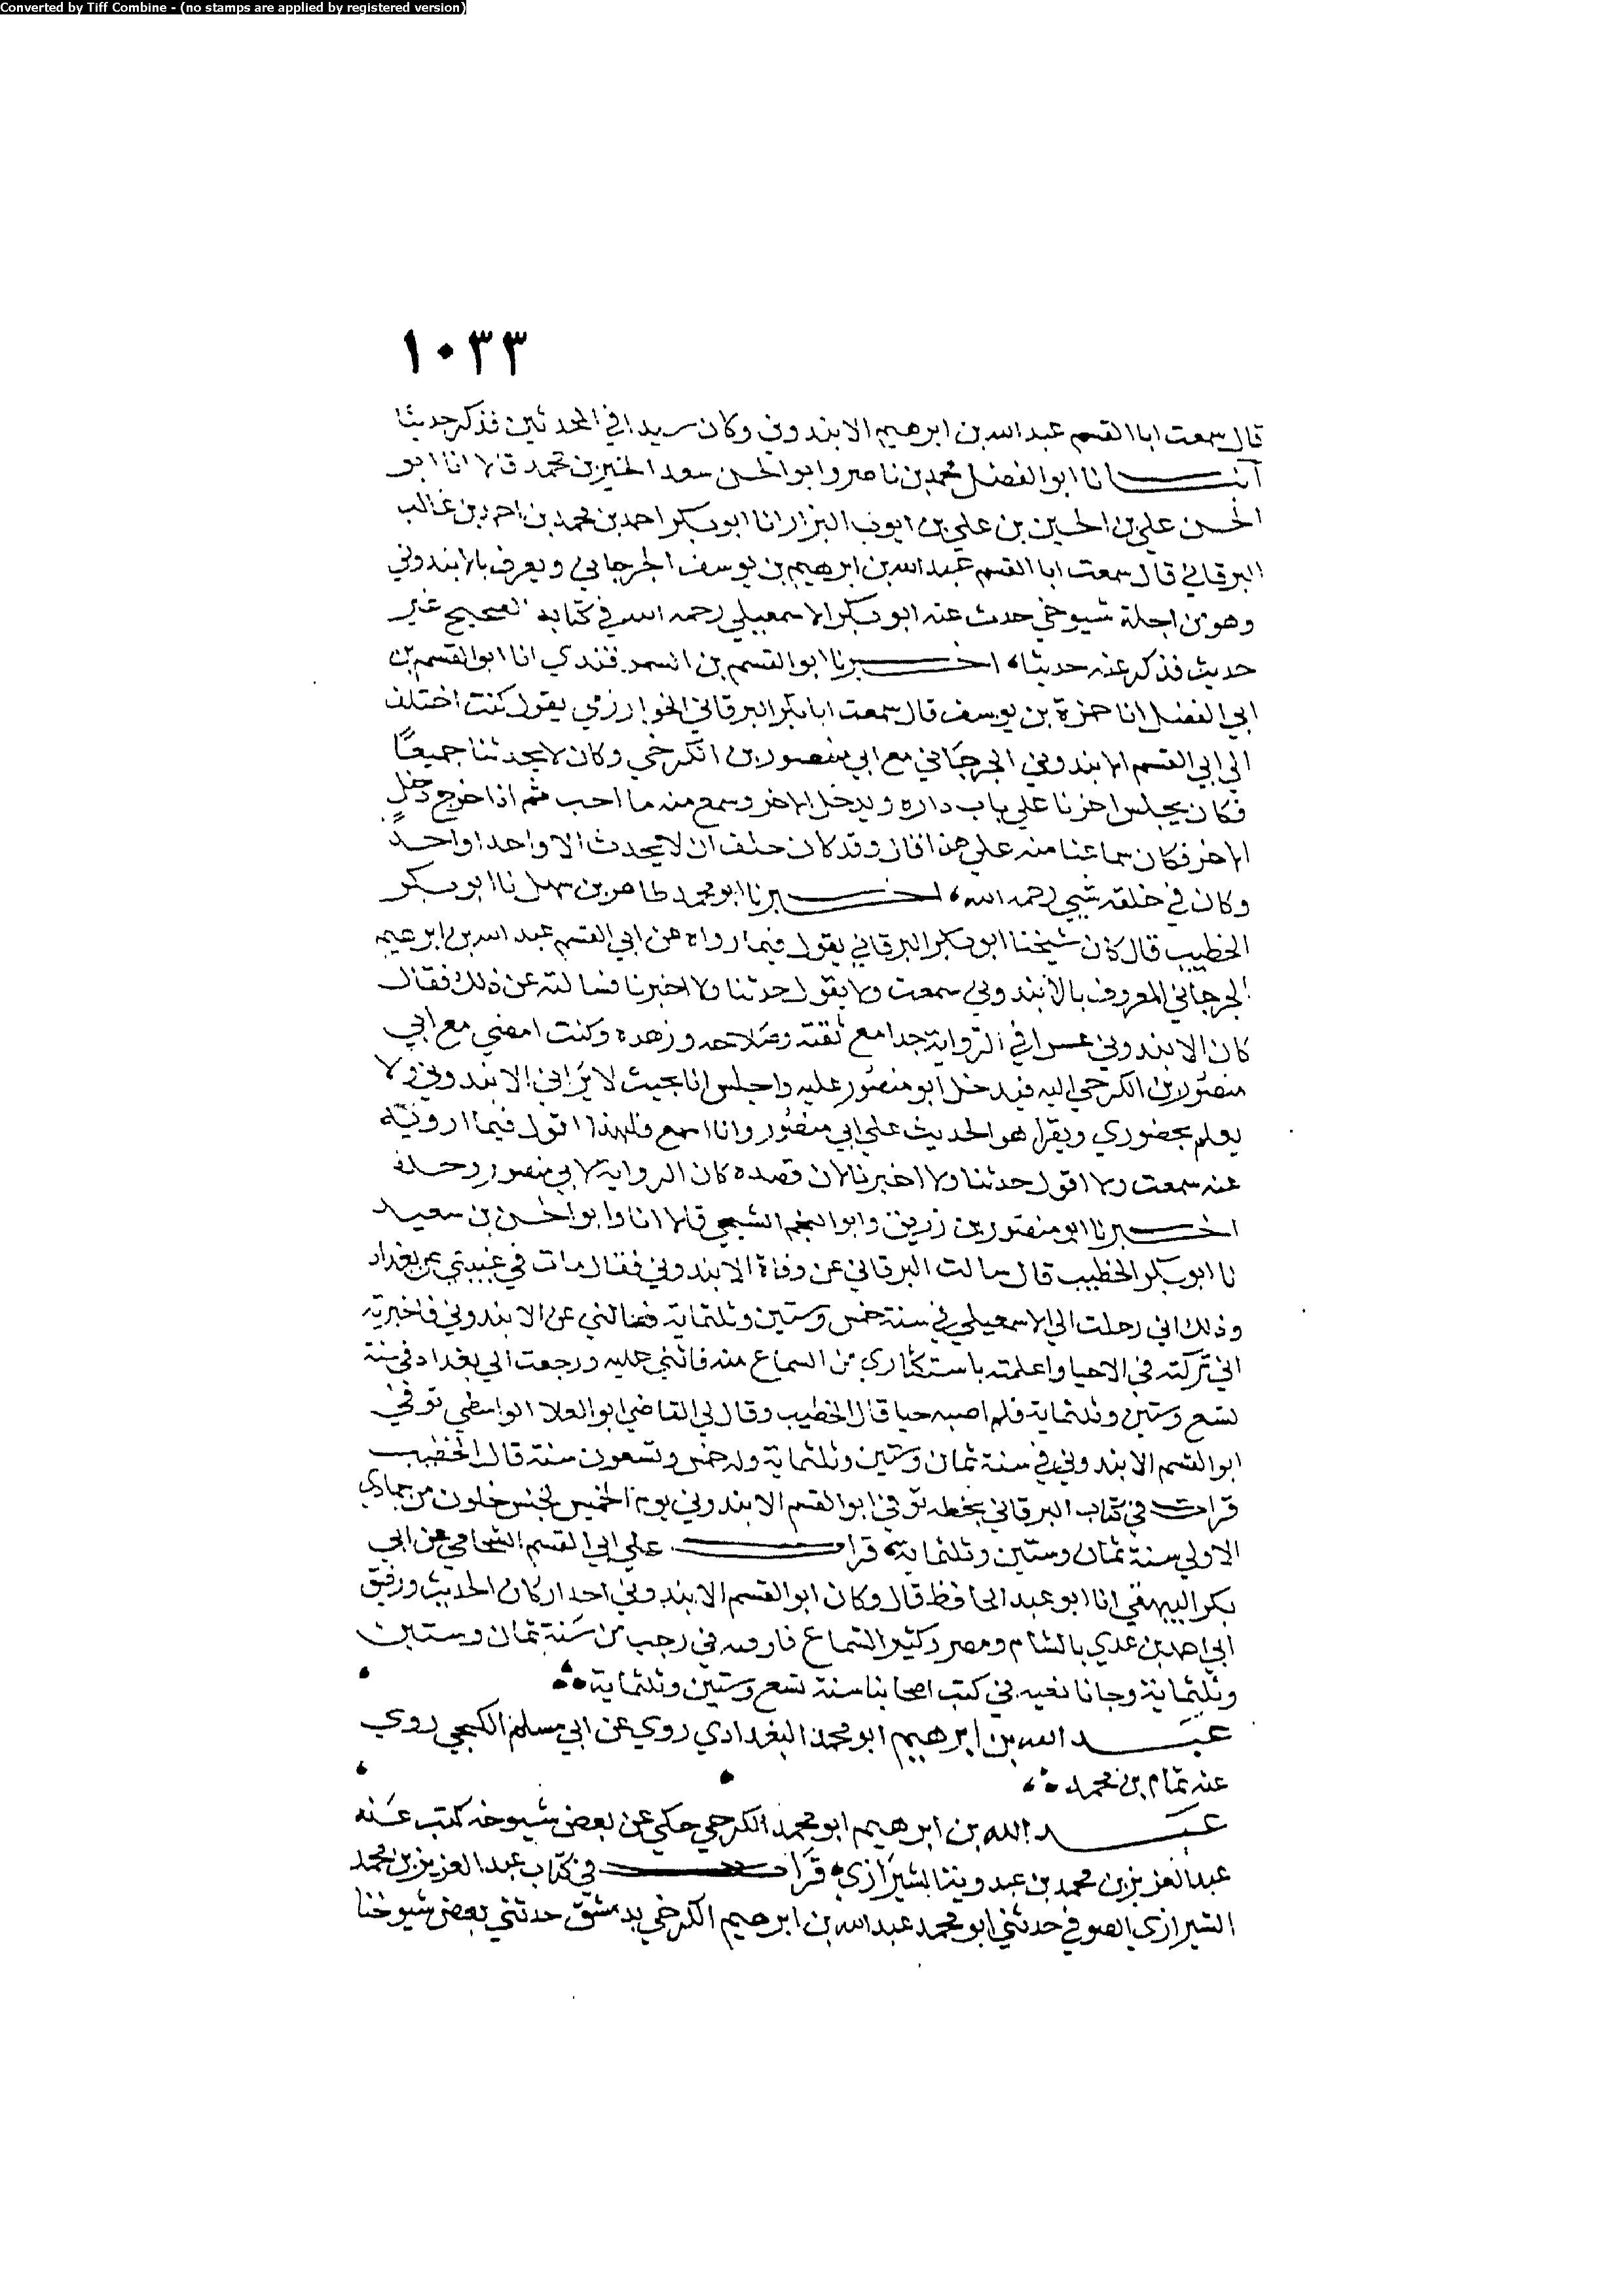 Converted by Tiff Combine - (no stamps are applied by registered version)
١٠٣٣
قال سمعت ابا القسم عبد الله بن ابرهيم الابندوني وكان سيدا في المحدثين فذكر حديثا
انبــانا ابو الفضل محمد بن ناصر وابو الحسن سعد الخير بن محمد قالا انا ابو
الحسن علي بن الحسين بن علي بن ايوب البزار انا ابو بكر احمد بن محمد بن احمد بن غالب
البرقاني قال سمعت ابا القسم عبد الله بن ابرهيم بن يوسف الجرجاني ويعرف بالابندوني
وهو من اجلة شيوخي حدث عنه ابو بكر الاسمعيلي رحمه الله في كتابه الصحيح غير
حديث فذكر عنه حديثا، اخــبرنا ابو القسم بن السمرقندي انا ابو القسم بن
ابي الفضل انا حمزة بن يوسف قال سمعت ابا بكر البرقاني الخوارزمي يقول كنت اختلف
الي ابي القسم الابندوني الجرجاني مع ابي منصور بن الكرخي وكان لا يحدثنا جميعا
فكان يجلس احدنا علي باب داره ويدخل الاخر وسمع منه ما احب ثم اذا خرج دخل
الاخر فكان سماعنا منه علي هذا قال وقد كان حلف ان لا يحدث الا واحدا واحد
وكان في خلقه شيي رحمه الله، اخــبرنا ابو محمد طاهر بن سهل نا ابو بكر
الخطيب قال كان شيخنا ابو بكر البرقاني يقول فيما رواه عن ابي القسم عبد الله بن ابرهيم
الجرجاني المعروف بالابندوني سمعت ولا يقول حدثنا ولا اخبرنا فسالته عن ذلك فقال
كان الابندوني عسرا في الرواية جدا مع ثقته وصلاحه وزهده وكنت امضي مع ابي
منصور بن الكرجي اليه فيدخل ابو منصور عليه واجلس انا بحيث لا يراني الابندوني ولا
يعلم بحضوري ويقرا هو الحديث علي ابي منصور وانا اسمع فلهذا اقول فيما ارويه
عنه سمعت ولا اقول حدثنا ولا اخبرنا لان قصده كان الرواية لابي منصور وحده
اخــبرنا ابو منصور بن زريق وابو النجم الشيحي قالا انا وابو الحسن بن سعيد
نا ابو بكر الخطيب قال سالت البرقاني عن وفاة الابندوني فقال مات في غيبتي عن بغداد
وذلك اني رحلت الي الاسمعيلي في سنة خمس وستين وثلثماية فسالني عن الابندوني فاخبرته
اني تركته في الاحيا واعلمته باستكثاري من السماع منه فاثني عليه ورجعت الي بغداد في سنة
تسع وستين وثلثماية فلم اصبه حيا قال الخطيب وقال لي القاضي ابو العلا الواسطي توفي
ابو القسم الابندوني في سنة ثمان وستين وثلثماية وله خمس وتسعون سنة قال الخطيب
قرات في كتاب البرقاني بخطه توفي ابو القسم الابندوني يوم الخميس لخمس خلون من جمادي
الاولي سنة ثمان وستين وثلثماية، قراتــ علي ابي القسم الشحامي عن ابي
بكر البيهقي انا ابو عبد الحافظ قال وكان ابو القسم الابندوني احد اركان الحديث ورفيق
ابي احمد بن عدي بالشام ومصر وكثير السماع في رجب من سنة ثمان وستين
وثلثماية وجانا نعيه في كتب اصحابنا سنة تسع وستين وثلثماية
عبــد الله بن ابرهيم ابو محمد البغدادي روي عن ابي مسلم الكجي روي
عنه تمام بن محمد
عبــد الله بن ابرهيم ابو محمد الكرجي حكي عن بعض شيوخه كتب عنه
عبد العزيز بن محمد بن عبدوية الشيرازي، قراتــ في كتاب عبد العزيز بن محمد
الشيرازي الصوفي حدثني ابو محمد عبد الله بن ابرهيم الكرخي بدمشق حدثني بعض شيوخنا